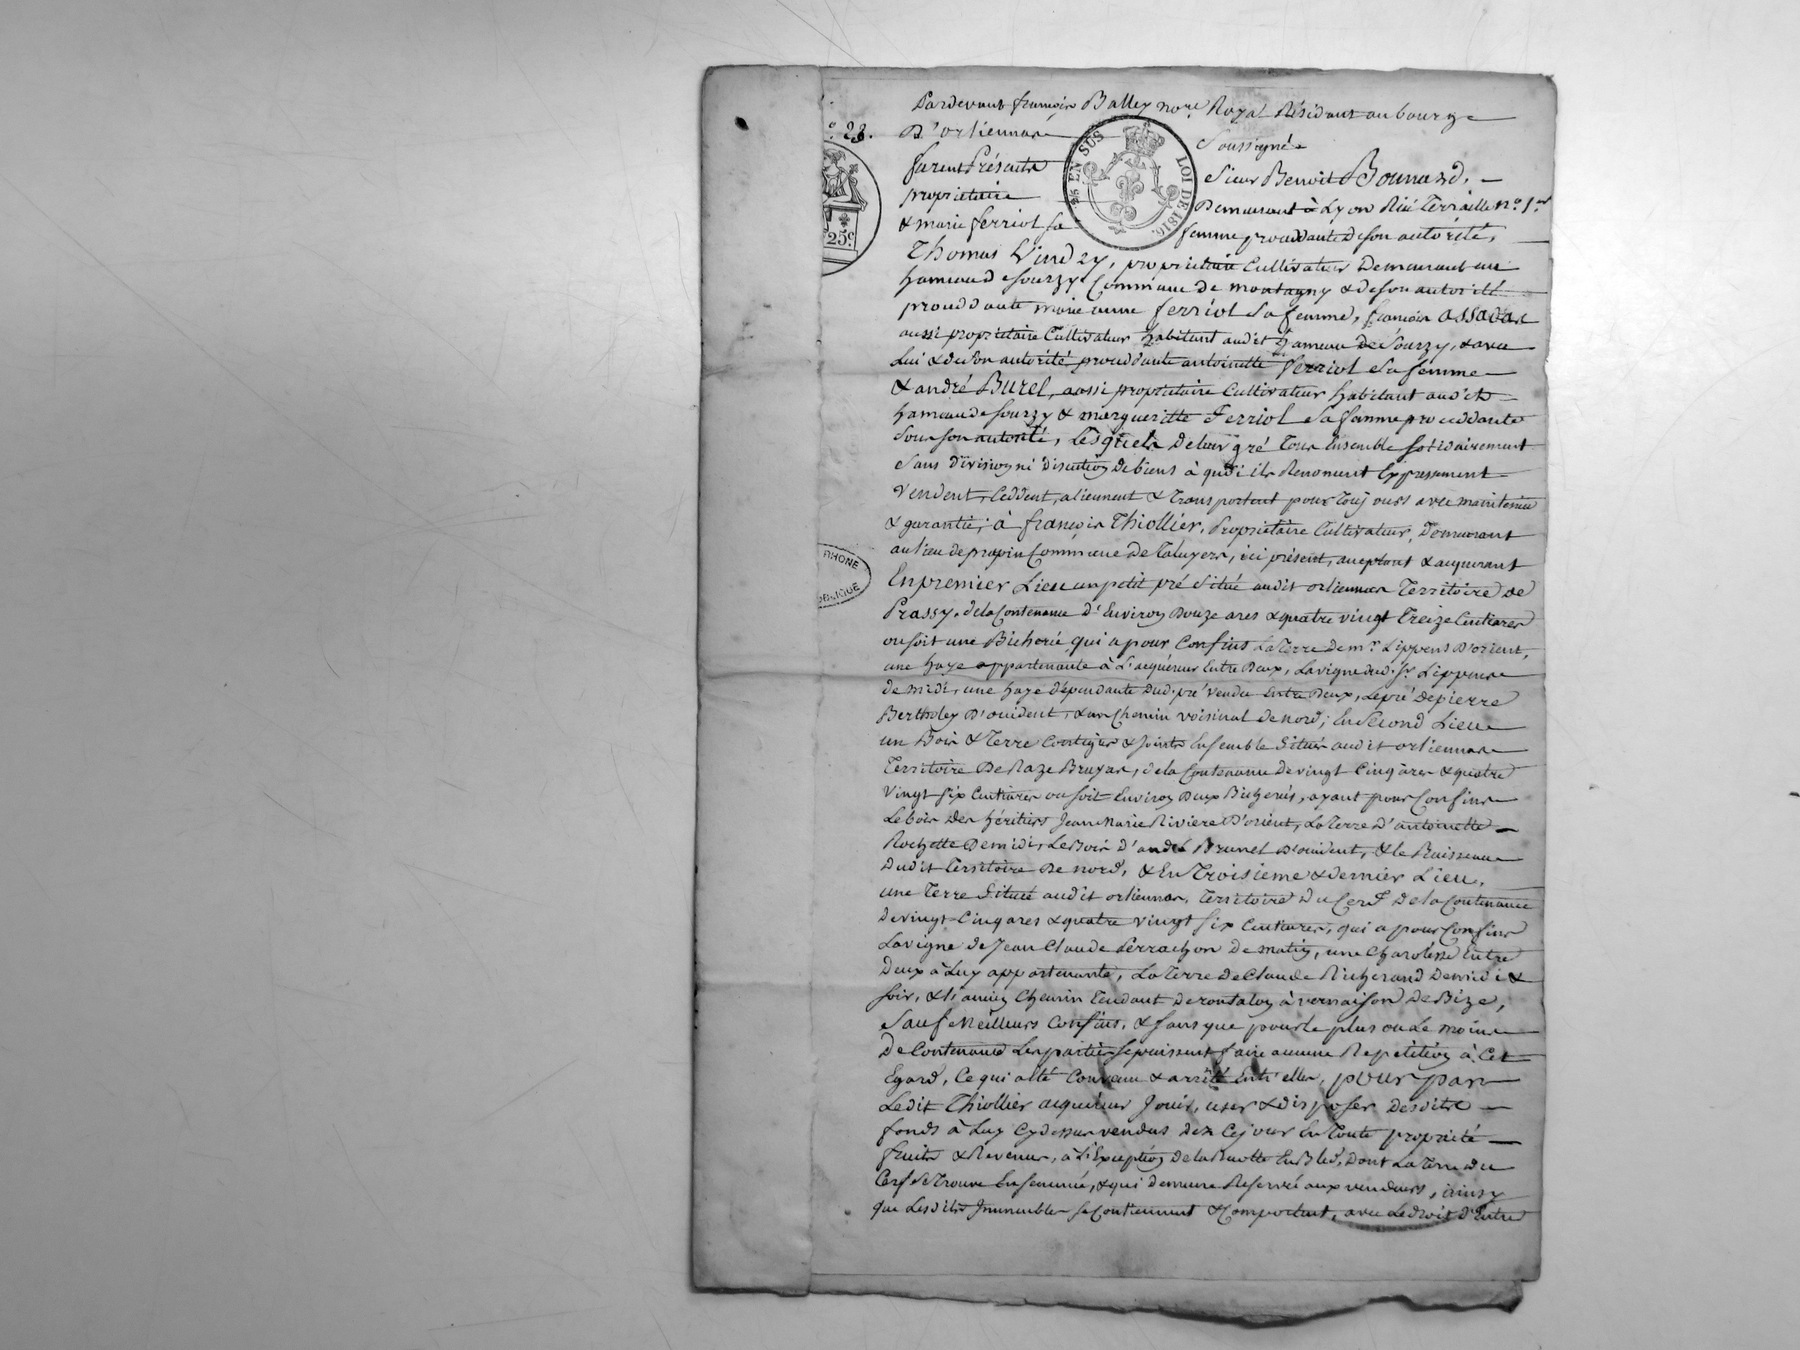 Pardevant françois Balley nore. Royal Résidant au bourg
D'orliennas soussigné
furent Présents sieur Benoit Bonnard,
propriétaire Demeurant à Lyon Rüe Terraille no. 1er
& marie ferriol sa femme proceddante de son autorité,
Thomas Vindry, propriétaire Cultivateur Demeurant au
hameau de sourzy Commune de montagny & de son autorité
proceddante marie anne ferriol sa femme, françois assada
aussi propriétaire Cultivateur habitant audit hameau de Sourzy, & avec
Lui & de son autorité proceddante antoinette ferriol sa femme
& andré Burel, aussi propriétaire Cultivateur habitant audit
hameau de sourzy & margueritte Ferriol sa femme proceddante
sous son autorité, Lesquels de leur gré Tous Ensemble solidairement
sans Division ni discution de biens à quoi ils Renoncent Expressement
Vendent, Ceddent, aliennent & Transportent pour Toujours avec maintenue
& garantie, à françois Thiollier, Propriétaire Cultivateur, Demeurant
au lieu de prapin Commune de Taluyers, ici présent, acceptant & acquerant
En premier Lieu un petit pré situé audit orliennas Territoire de
Prassy, de la Contenance d'Environ Douze ares & quatre vingt Treize Centiares
ou soit une Bicherée, qui a pour Confins La Terre de mr. Lippens D'orient,
une haye appartenante à L'acquéreur Entre Deux, La vigne dud. sr. Lippens
de midi, une haye dépendante dud. pré vendu Entre Deux, Le pré de pierre
Bertholey D'occident, & un Chemin voisinal de nord; En Second Lieu
un Bois & Terre Contigus & Joints Ensemble situés audit orliennas
Territoire De Raze Bruyas, de la Contenance de vingt Cinq ares & quatre
vingt six Centiares ou soit Environ Deux Bicherées, ayant pour Confins
Le bois des héritiers Jean Marie Riviere D'orient, La Terre d'antoinette
Rochette De midi, Le Bois d'andré Brunel D'occident, & le Ruisseau
Dudit Territoire De nord, & En Troisieme & dernier Lieu,
une Terre située audit orliennas, Territoire du Cerf De la Contenance
De vingt Cinq ares & quatre vingt six Centiares, qui a pour Confins
La vigne de Jean Claude Perrachon De matin, une Charoisse Entre
Deux à Luy appartenante, La Terre de Claude Richerand De midi &
soir, & l'ancien Chemin Tendant de rontalon à vernaison De Bize,
Sauf Meilleurs Confins, & sans que pour le plus ou Le moins
De Contenance Les parties se puissent faire aucune Repétition à Cet
Egard, Ce qui a été Convenu & arrêté Entr'elles, pour par
Ledit Thiollier acquéreur Jouir, user & disposer Desdits
fonds à Luy Cydessus vendus dez Cejour En Toute propriété
fruits & Revenus, à L'Exception de la Recolte En Bled, Dont La Terre du
Cerf se Trouve Ensemencée, & qui demeure Reservée aux vendeurs, ainsy
que Lesdits Immeubles se Contiennent & Comportent, avec Le droit d'Entrée
28.
25 EN SUS
LOI DE 1816.
25c.
RHONE